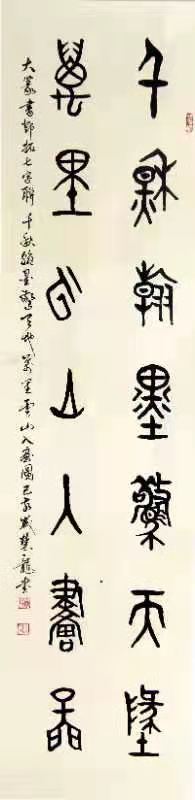 千秋翰墨驚天地
萬里雲山入畫圖
大篆書鄧拓七字聯千秋翰墨驚天地萬里雲山入畫圖己亥歲龍書